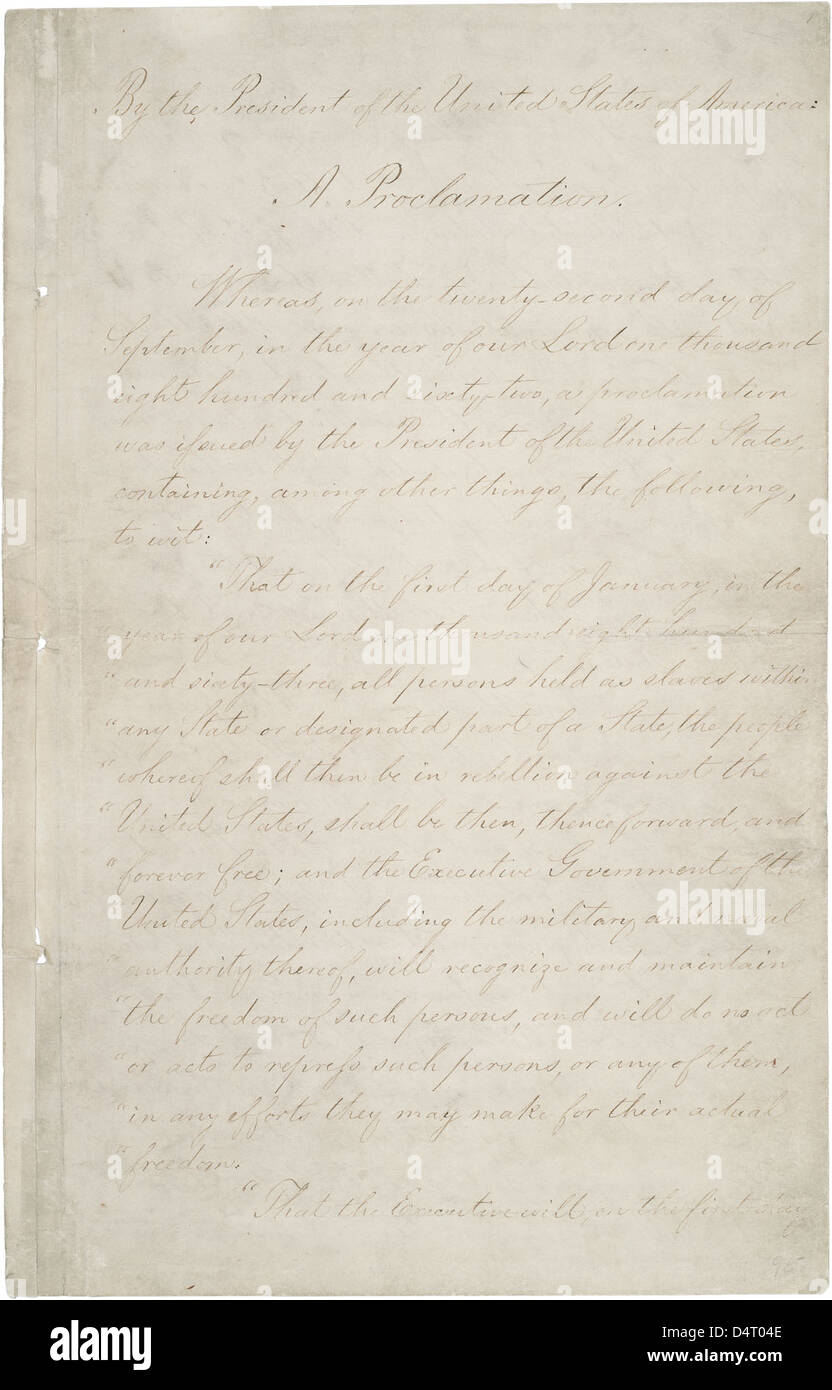 By the President of the United States of America:
A Proclamation.
Whereas, on the twenty-second day of
September, in the year of our Lord one thousand
eight hundred and sixty-two, a proclamation
was issued by the President of the United States,
containing, among other things, the following,
to wit:
"That on the first day of January, in the
"year of our Lord one thousand eight hundred
"and sixty-three, all persons held as slaves within
"any State or designated part of a State, the people
"whereof shall then be in rebellion against the
"United States, shall be then, thenceforward, and
"forever free; and the Executive Government of the
United States, including the military and naval
"authority thereof, will recognize and maintain
"the freedom of such persons, and will do no act
"or acts to repress such persons, or any of them,
"in any efforts they may make for their actual
"freedom.
"That the Executive will, on the first day
95
alamy
Image ID: D4T04E
www.alamy.com